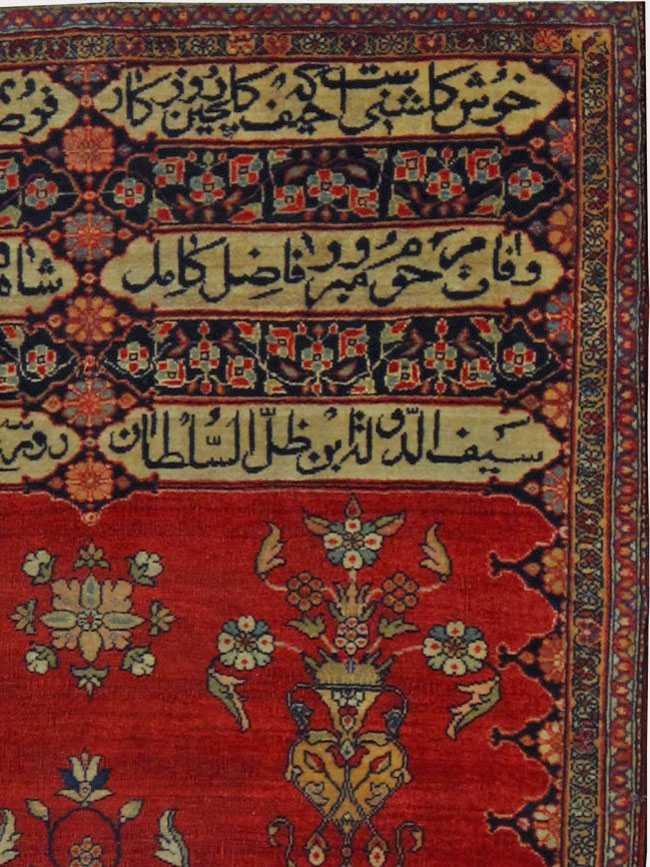 خوش کلشنی است حیف که کلچین روزکار
وفات مرحوم مبرور فاضل کامل
سیف الدّوله ابن ظلّ السّلطان